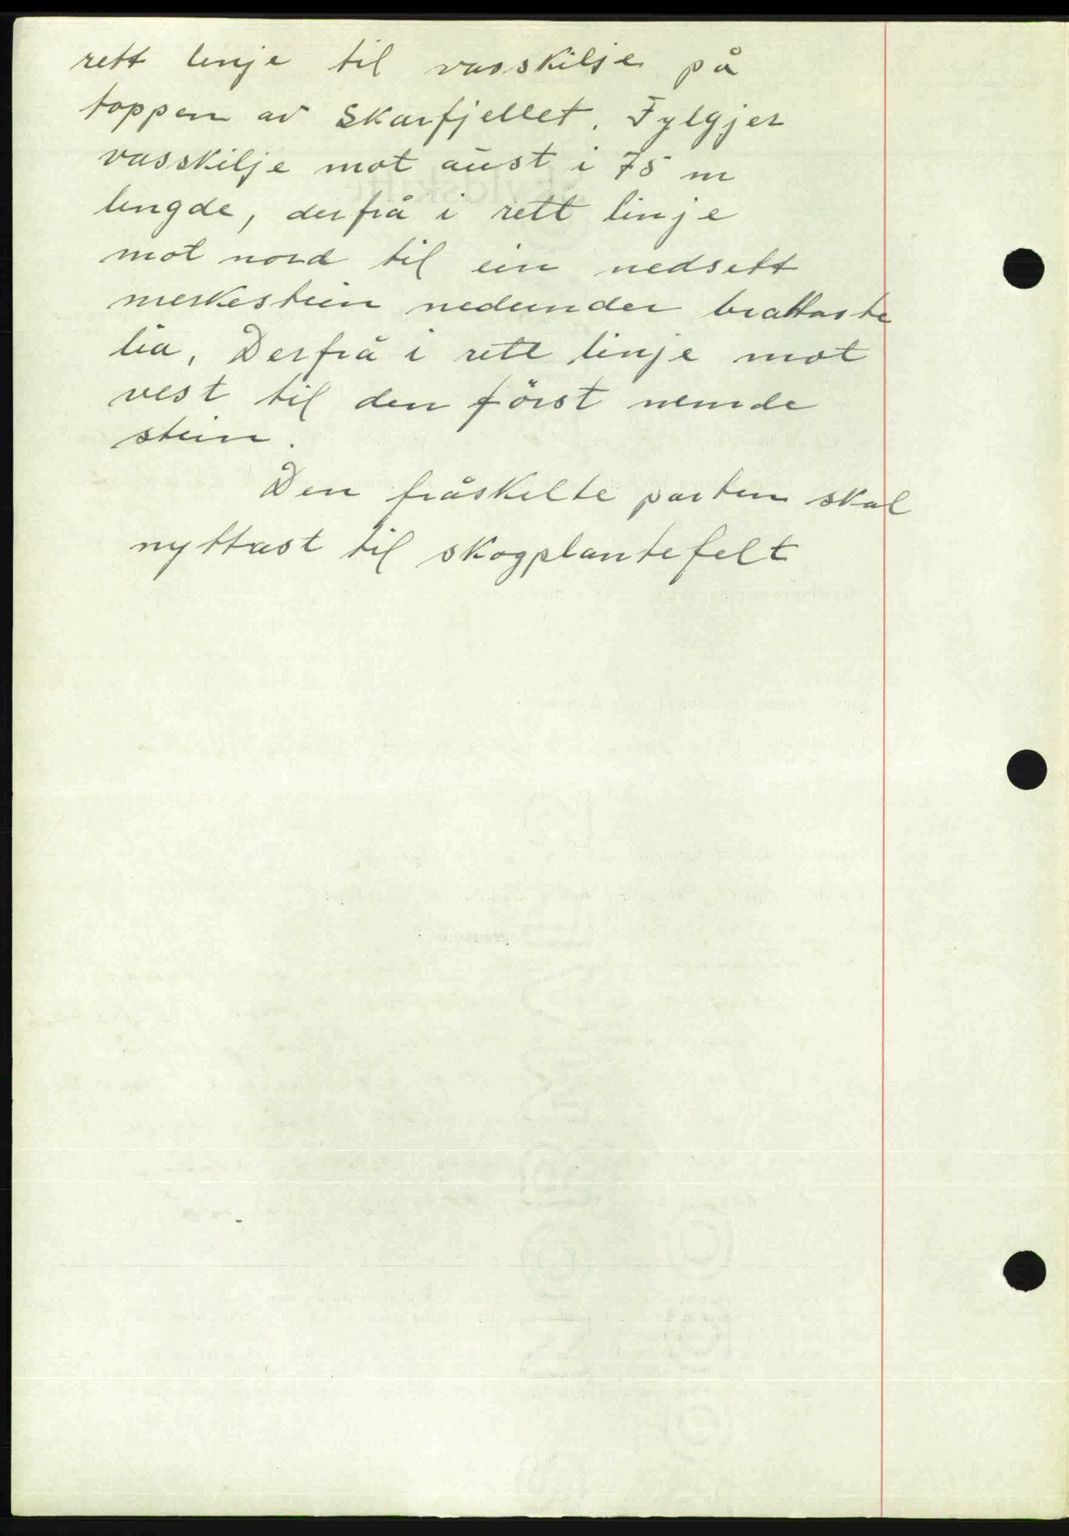 rett linje til vasskilje på
toppen av Skarfjellet. Fylgjer
vasskilje mot aust i 75 m
lengde, derfrå i rett linje
mot nord til ein nedsett
merkestein nedunder brattaste
lia, Derfrå i rett linje mot
vest til den först nemde
stein.
Den fråskilte parten skal
nyttast til skogplantefelt